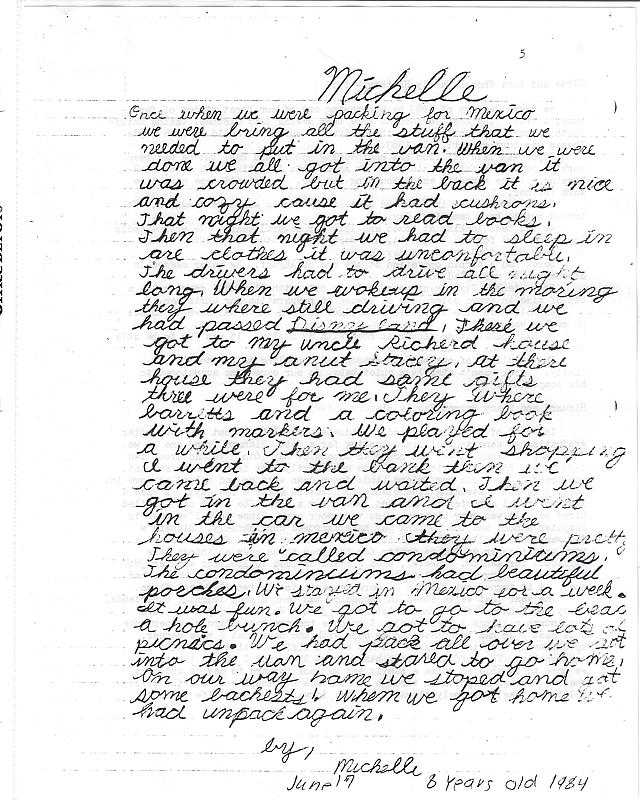 5
Michelle
Once when we were packing for Mexico
we were bring all the stuff that we
needed to put in the van. When we were
done we all got into the van it
was crowded but in the back it is nice
and cozy cause it had cushrons.
That night we got to read books.
Then that night we had to sleep in
are clothes it was unconfortable.
The drivers had to drive all night
long. When we wokeup in the moring
they where still driving and we
had passed Disny Land. There we
got to my uncle Richerd house
and my anut Stacey. at there
house they had same gifts
three were for me. They where
barretts and a coloring book
with markers. We played for
a while. Then they went shopping
I went to the bank then we
came back and waited. Then we
got in the van and I went
in the car we came to the
houses in mexico they were pretty
They were called condominiums.
The condominiums had beautiful
porches. We stayed in Mexico for a week.
It was fun. We got to go to the beac
a hole bunch. We got to have lots of
picnics. We had pack all over we got
into the van and stared to go home.
On our way home we stoped and got
some
Whem we got home we
had unpack again.
by,
Michelle
June 17 8 Years old 1984